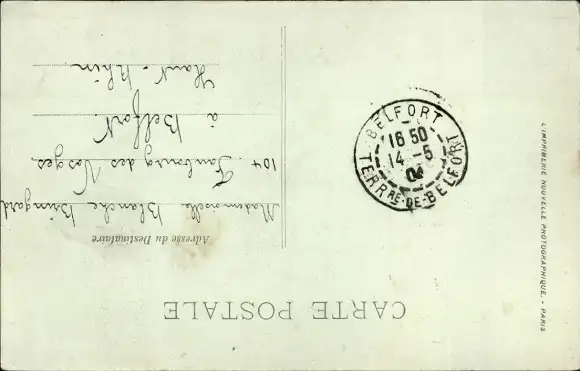 CARTE POSTALE
Adresse du Destinataire
Mademoiselle Blanche
104 Faubourg des Vosges
à Belfort.
Haut-Rhin.
BELFORT
16 50
14 -5
04
TERRE-DE-BELFORT
L'IMPRIMERIE NOUVELLE PHOTOGRAPHIQUE. - PARIS